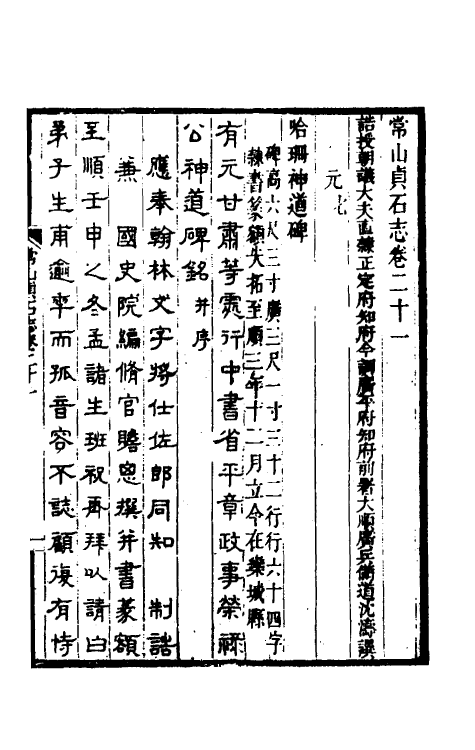 常山貞石志卷二十一
誥授朝議大夫直隸正定府知府今調廣平府知府前署大順廣兵備道沈濤譔
元七
哈珊神道碑
碑高六尺三寸廣三尺一寸三十二行行六十四字
隸書篆額失拓至順三年十二月立今在欒城縣
有元甘肅等處行中書省平章政事榮祿
公神道碑銘并序
應奉翰林文字將仕佐郎同知 制誥
兼 國史院編脩官贍思撰并書篆額
至順壬申之冬孟諸生班祝再拜以請白
弟子生甫逾卒而孤音容不誌顧復有恃
常山貞石志卷二十一
一